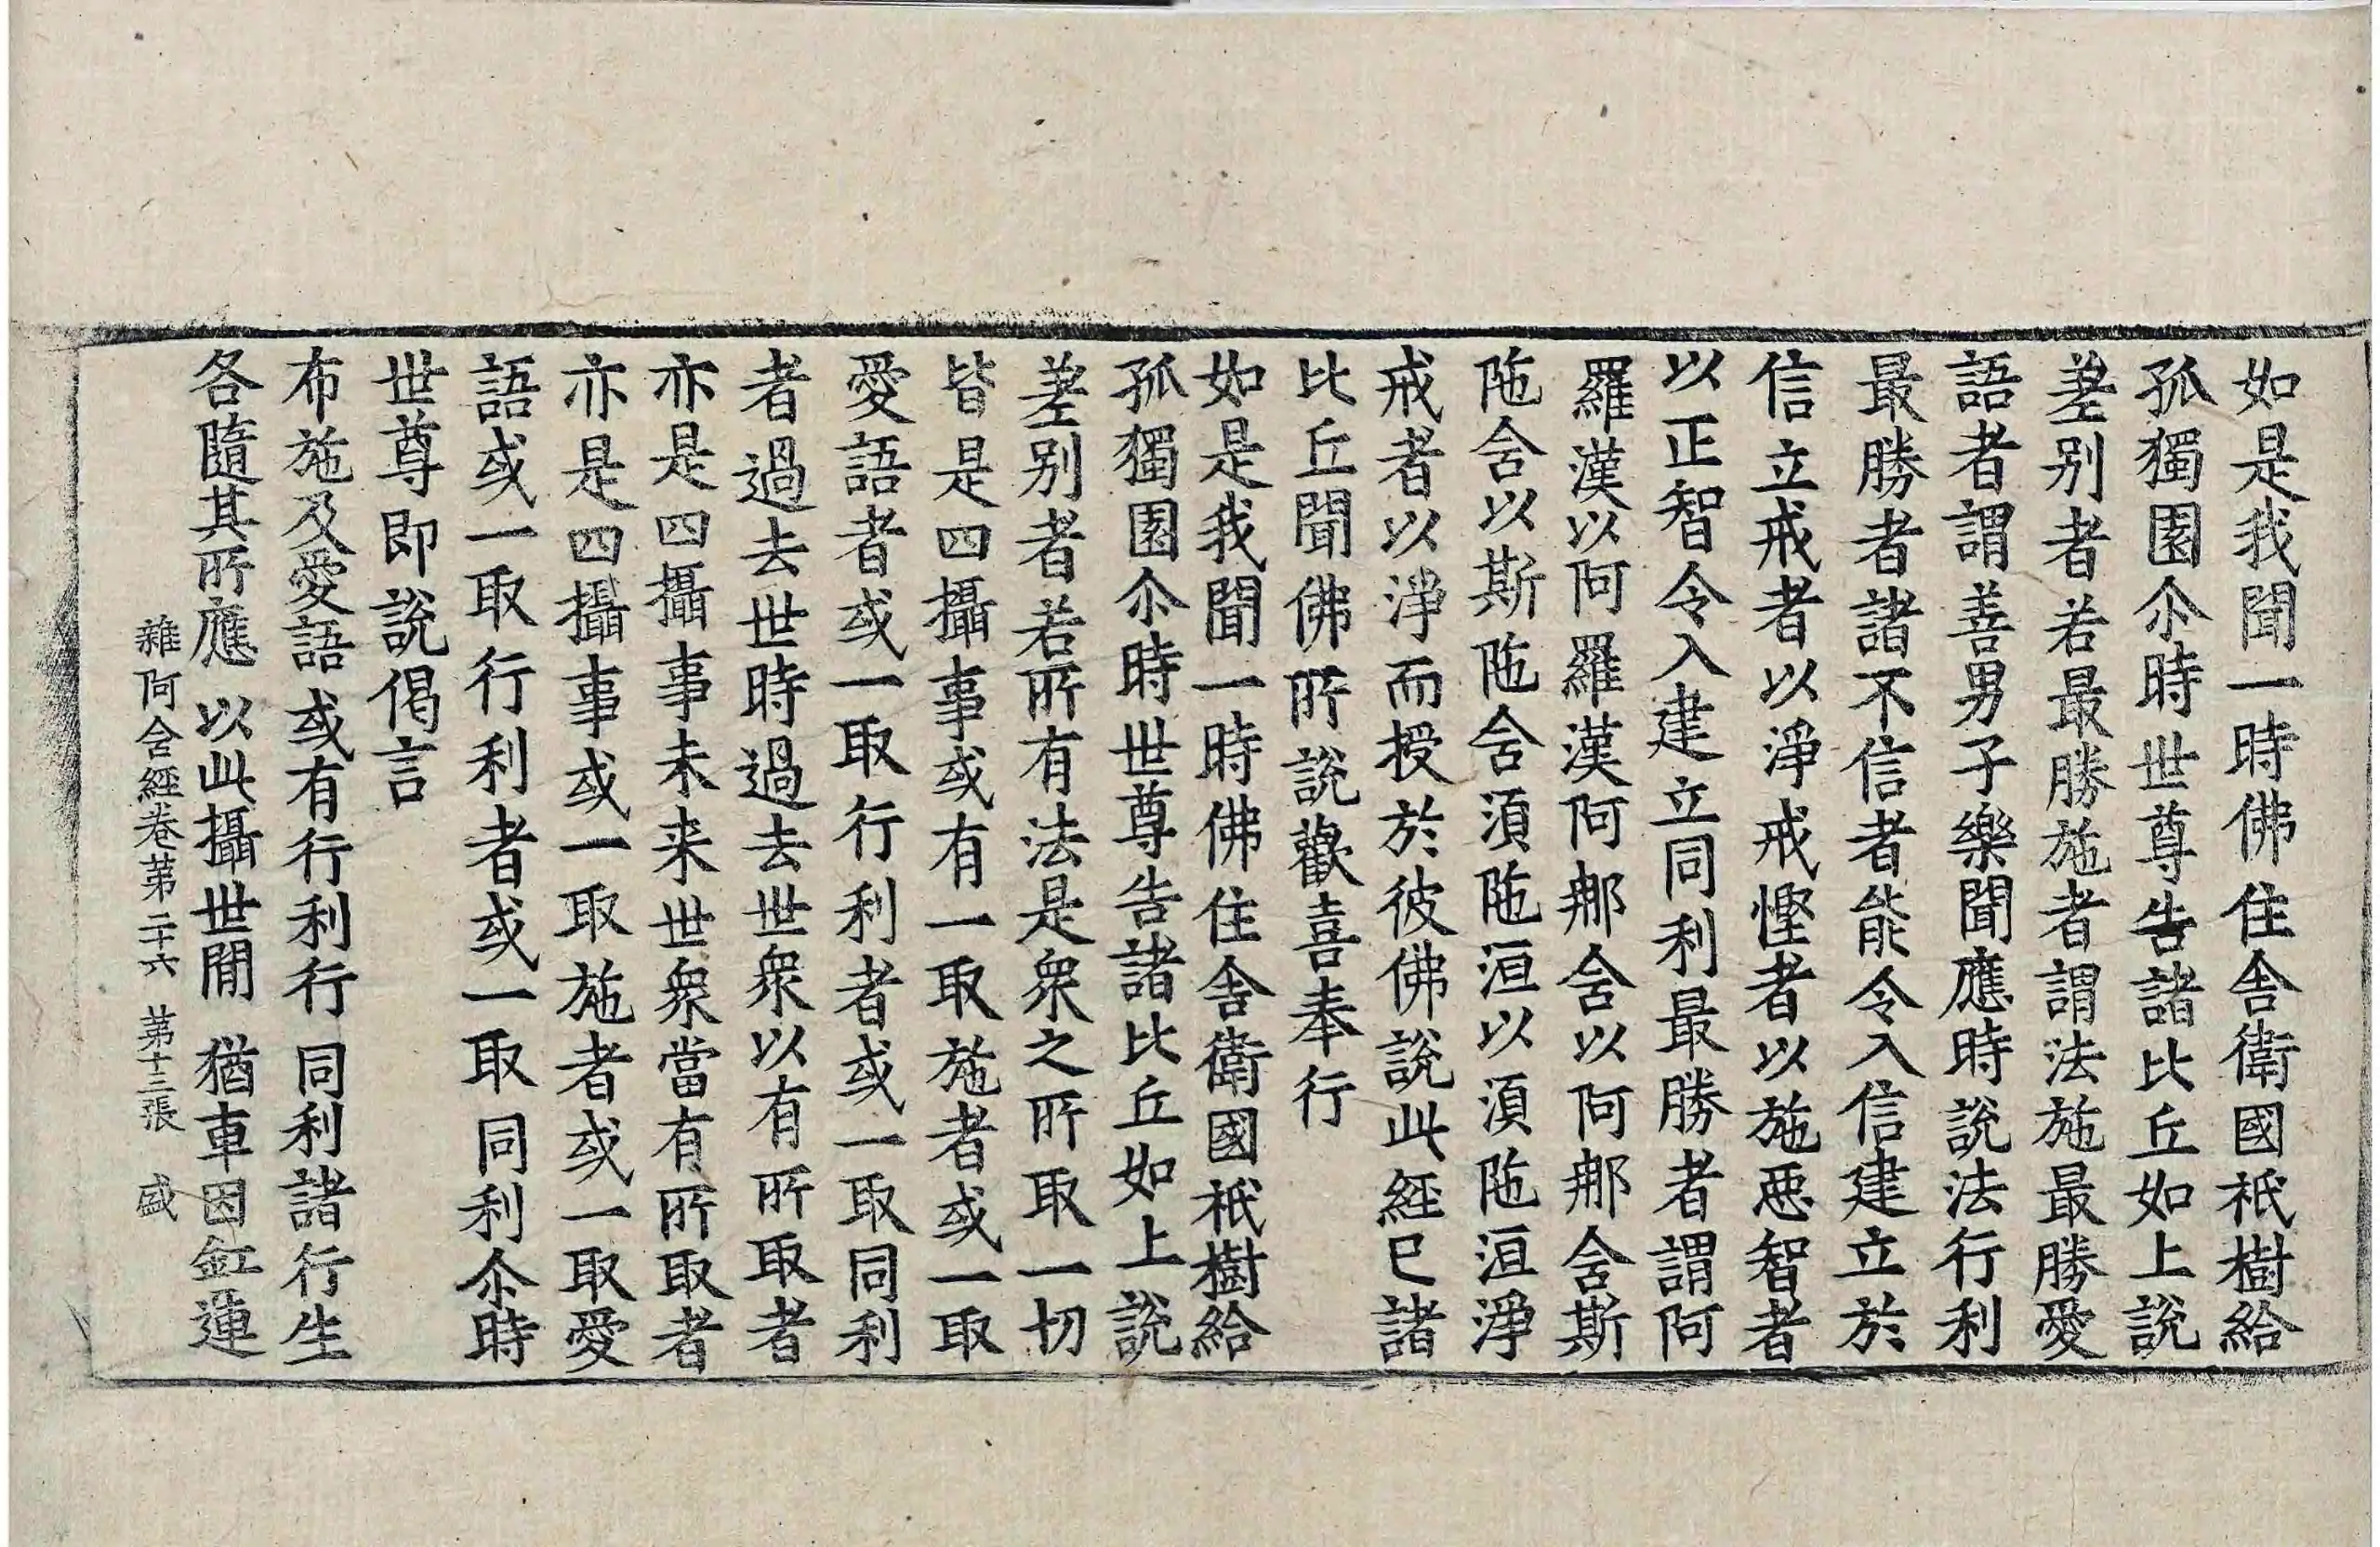 如是我聞一時佛住舍衛國祇樹給
孤獨園尒時世尊告諸比丘如上說
差别者若最勝施者謂法施最勝愛
語者謂善男子樂聞應時說法行利
最勝者諸不信者能令入信建立於
信立戒者以淨戒慳者以施惡智者
以正智令入建立同利最勝者謂阿
羅漢以阿羅漢阿那舍以阿那舍斯
陁舍以斯陁舍湏陁洹以湏陁洹淨
戒者以淨而授於彼佛說此經已諸
比丘聞佛所說歡喜奉行
如是我聞一時佛住舍衛國祇樹給
孤獨園尒時世尊告諸比丘如上說
差别者若所有法是衆之所取一切
皆是四攝事或有一取施者或一取
愛語者或一取行利者或一取同利
者過去世時過去世衆以有所取者
亦是四攝事未来世衆當有所取者
亦是四攝事或一取施者或一取愛
語或一取行利者或一取同利尒時
世尊即說偈言
布施及愛語 或有行利行 同利諸行生
各隨其所應 以此攝世閒 猶車因釭運
雜阿含經卷苐二十六 苐十三張 盛